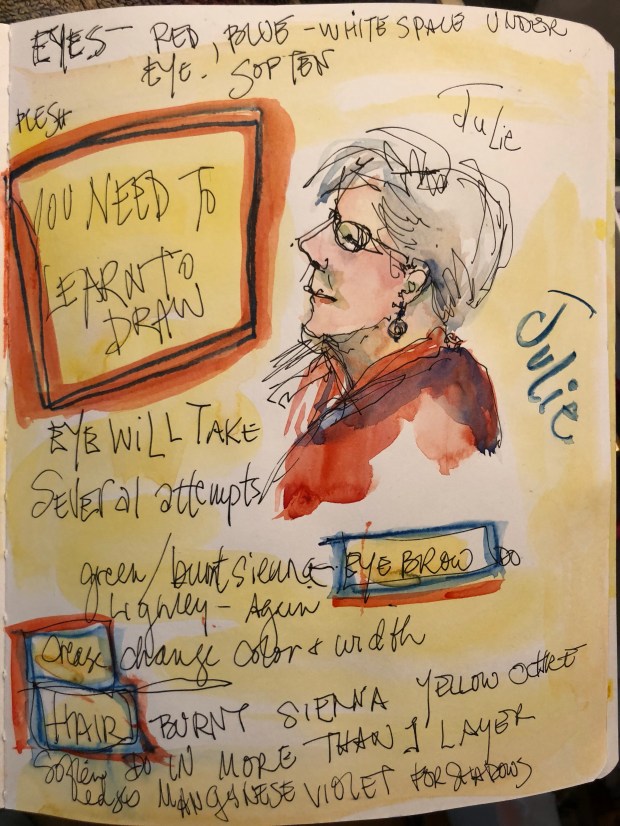 EYES — RED, BLUE - WHITE SPACE UNDER
EYE. SOFTEN
FLESH
Julie
YOU NEED TO
LEARN TO
DRAW
Julie
EYE WILL TAKE
Several attempts
green/burnt sienna - EYE BROW DO
Lightley - Again
Crease change color & width
HAIR - BURNT SIENNA YELLOW OCHRE
DO IN MORE THAN 1 LAYER
edges MANGANESE VIOLET FOR SHADOWS